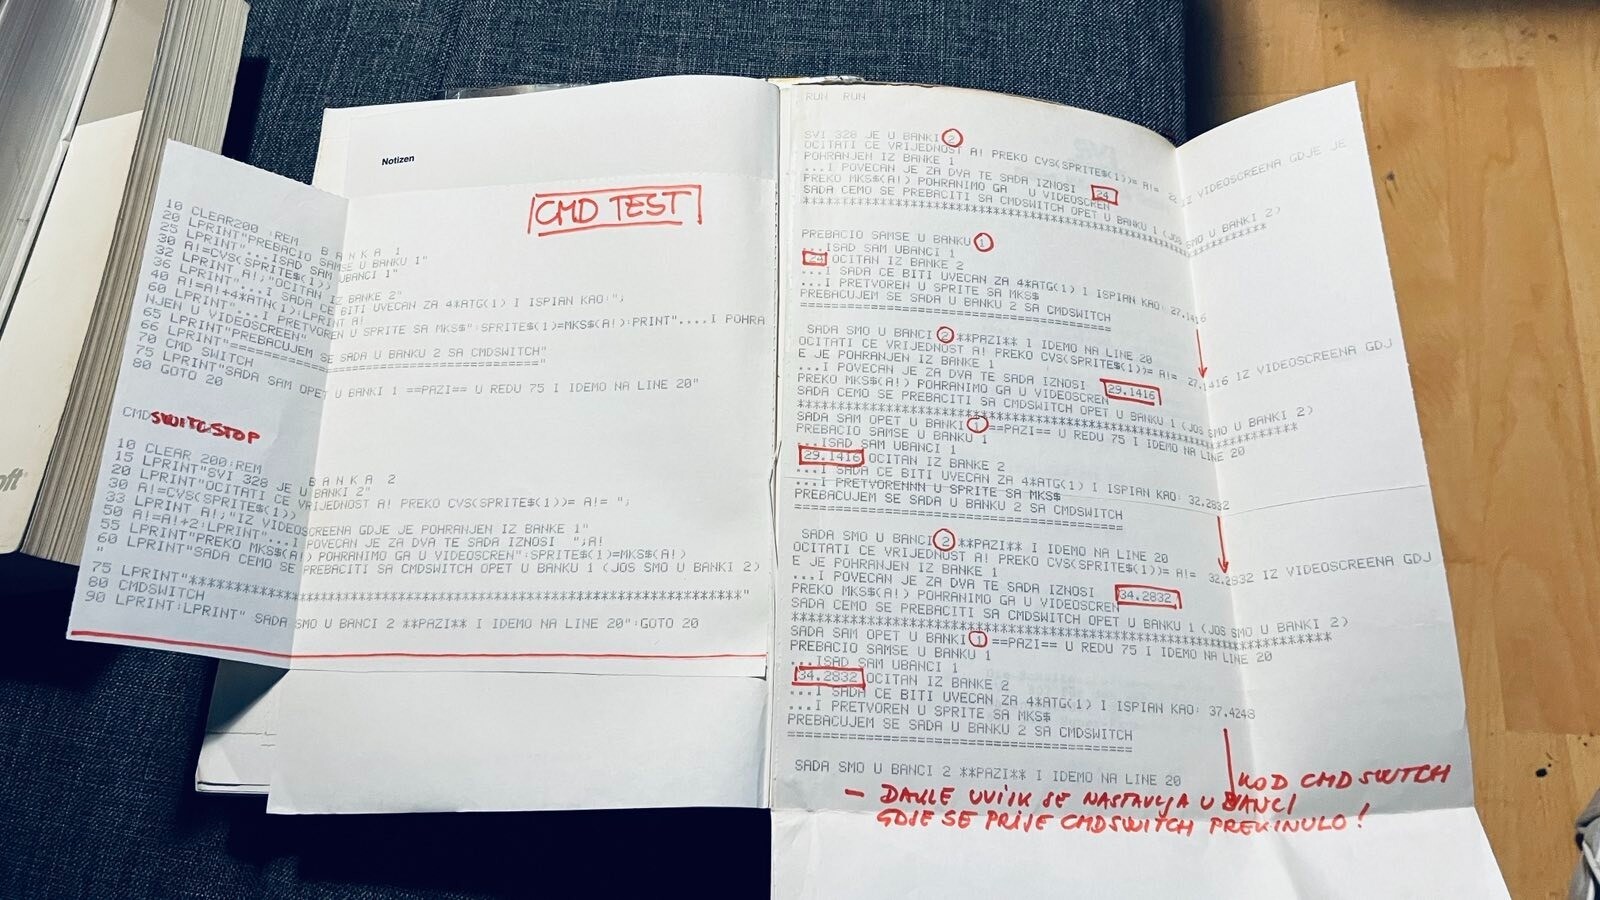 oft
Notizen
CMD TEST
10 CLEAR200 :REM B A N K A 1
20 LPRINT"PREBACIO SAMSE U BANKU 1"
25 LPRINT"...ISAD SAM UBANCI 1"
30 A!=CVS(SPRITE$(1))
32 LPRINT A!;"OCITAN IZ BANKE 2"
36 LPRINT"...I SADA CE BITI UVECAN ZA 4*ATG(1) I ISPIAN KAO:";
40 A!=A!+4*ATN(1):LPRINT A!
60 LPRINT"...I PRETVOREN U SPRITE SA MKS$":SPRITE$(1)=MKS$(A!):PRINT"....I POHRA
NJEN U VIDEOSCREEN"
65 LPRINT"PREBACUJEM SE SADA U BANKU 2 SA CMDSWITCH"
66 LPRINT"======================================="
70 CMD SWITCH
75 LPRINT"SADA SAM OPET U BANKI 1 ==PAZI== U REDU 75 I IDEMO NA LINE 20"
80 GOTO 20
CMD
STOP
10 CLEAR 200:REM B A N K A 2
15 LPRINT"SVI 328 JE U BANKI 2"
20 LPRINT"OCITATI CE VRIJEDNOST A! PREKO CVS(SPRITE$(1))= A!= ";
30 A!=CVS(SPRITE$(1))
33 LPRINT A!;"IZ VIDEOSCREENA GDJE JE POHRANJEN IZ BANKE 1"
50 A!=A!+2:LPRINT"...I POVECAN JE ZA DVA TE SADA IZNOSI ";A!
55 LPRINT"PREKO MKS$(A!) POHRANIMO GA U VIDEOSCREN":SPRITE$(1)=MKS$(A!)
60 LPRINT"SADA CEMO SE PREBACITI SA CMDSWITCH OPET U BANKU 1 (JOS SMO U BANKI 2)
"
75 LPRINT"*******************************************************"
80 CMDSWITCH
90 LPRINT:LPRINT" SADA SMO U BANCI 2 **PAZI** I IDEMO NA LINE 20":GOTO 20
RUN RUN
SVI 328 JE U BANKI 2
OCITATI CE VRIJEDNOST A! PREKO CVS(SPRITE$(1))= A!= 22 IZ VIDEOSCREENA GDJE JE
POHRANJEN IZ BANKE 1
...I POVECAN JE ZA DVA TE SADA IZNOSI 24
PREKO MKS$(A!) POHRANIMO GA U VIDEOSCREN
SADA CEMO SE PREBACITI SA CMDSWITCH OPET U BANKU 1 (JOS SMO U BANKI 2)
*******************************************************
PREBACIO SAMSE U BANKU 1
...ISAD SAM UBANCI 1
24 OCITAN IZ BANKE 2
...I SADA CE BITI UVECAN ZA 4*ATG(1) I ISPIAN KAO: 27.1416
...I PRETVOREN U SPRITE SA MKS$
PREBACUJEM SE SADA U BANKU 2 SA CMDSWITCH
=======================================
SADA SMO U BANCI 2 **PAZI** I IDEMO NA LINE 20
OCITATI CE VRIJEDNOST A! PREKO CVS(SPRITE$(1))= A!= 27.1416 IZ VIDEOSCREENA GDJ
E JE POHRANJEN IZ BANKE 1
...I POVECAN JE ZA DVA TE SADA IZNOSI 29.1416
PREKO MKS$(A!) POHRANIMO GA U VIDEOSCREN
SADA CEMO SE PREBACITI SA CMDSWITCH OPET U BANKU 1 (JOS SMO U BANKI 2)
*******************************************************
SADA SAM OPET U BANKI 1 ==PAZI== U REDU 75 I IDEMO NA LINE 20
PREBACIO SAMSE U BANKU 1
...ISAD SAM UBANCI 1
29.1416 OCITAN IZ BANKE 2
...I SADA CE BITI UVECAN ZA 4*ATG(1) I ISPIAN KAO: 32.2832
...I PRETVORENNN U SPRITE SA MKS$
PREBACUJEM SE SADA U BANKU 2 SA CMDSWITCH
=======================================
SADA SMO U BANCI 2 **PAZI** I IDEMO NA LINE 20
OCITATI CE VRIJEDNOST A! PREKO CVS(SPRITE$(1))= A!= 32.2832 IZ VIDEOSCREENA GDJ
E JE POHRANJEN IZ BANKE 1
...I POVECAN JE ZA DVA TE SADA IZNOSI 34.2832
PREKO MKS$(A!) POHRANIMO GA U VIDEOSCREN
SADA CEMO SE PREBACITI SA CMDSWITCH OPET U BANKU 1 (JOS SMO U BANKI 2)
*******************************************************
SADA SAM OPET U BANKI 1 ==PAZI== U REDU 75 I IDEMO NA LINE 20
PREBACIO SAMSE U BANKU 1
...ISAD SAM UBANCI 1
34.2832 OCITAN IZ BANKE 2
...I SADA CE BITI UVECAN ZA 4*ATG(1) I ISPIAN KAO: 37.4248
...I PRETVOREN U SPRITE SA MKS$
PREBACUJEM SE SADA U BANKU 2 SA CMDSWITCH
=======================================
SADA SMO U BANCI 2 **PAZI** I IDEMO NA LINE 20
KOD CMD SWITCH
– DAKLE UVIJK SE NASTAVLJA U BANCI
GDJE SE PRIJE CMDSWITCH PREKINULO!